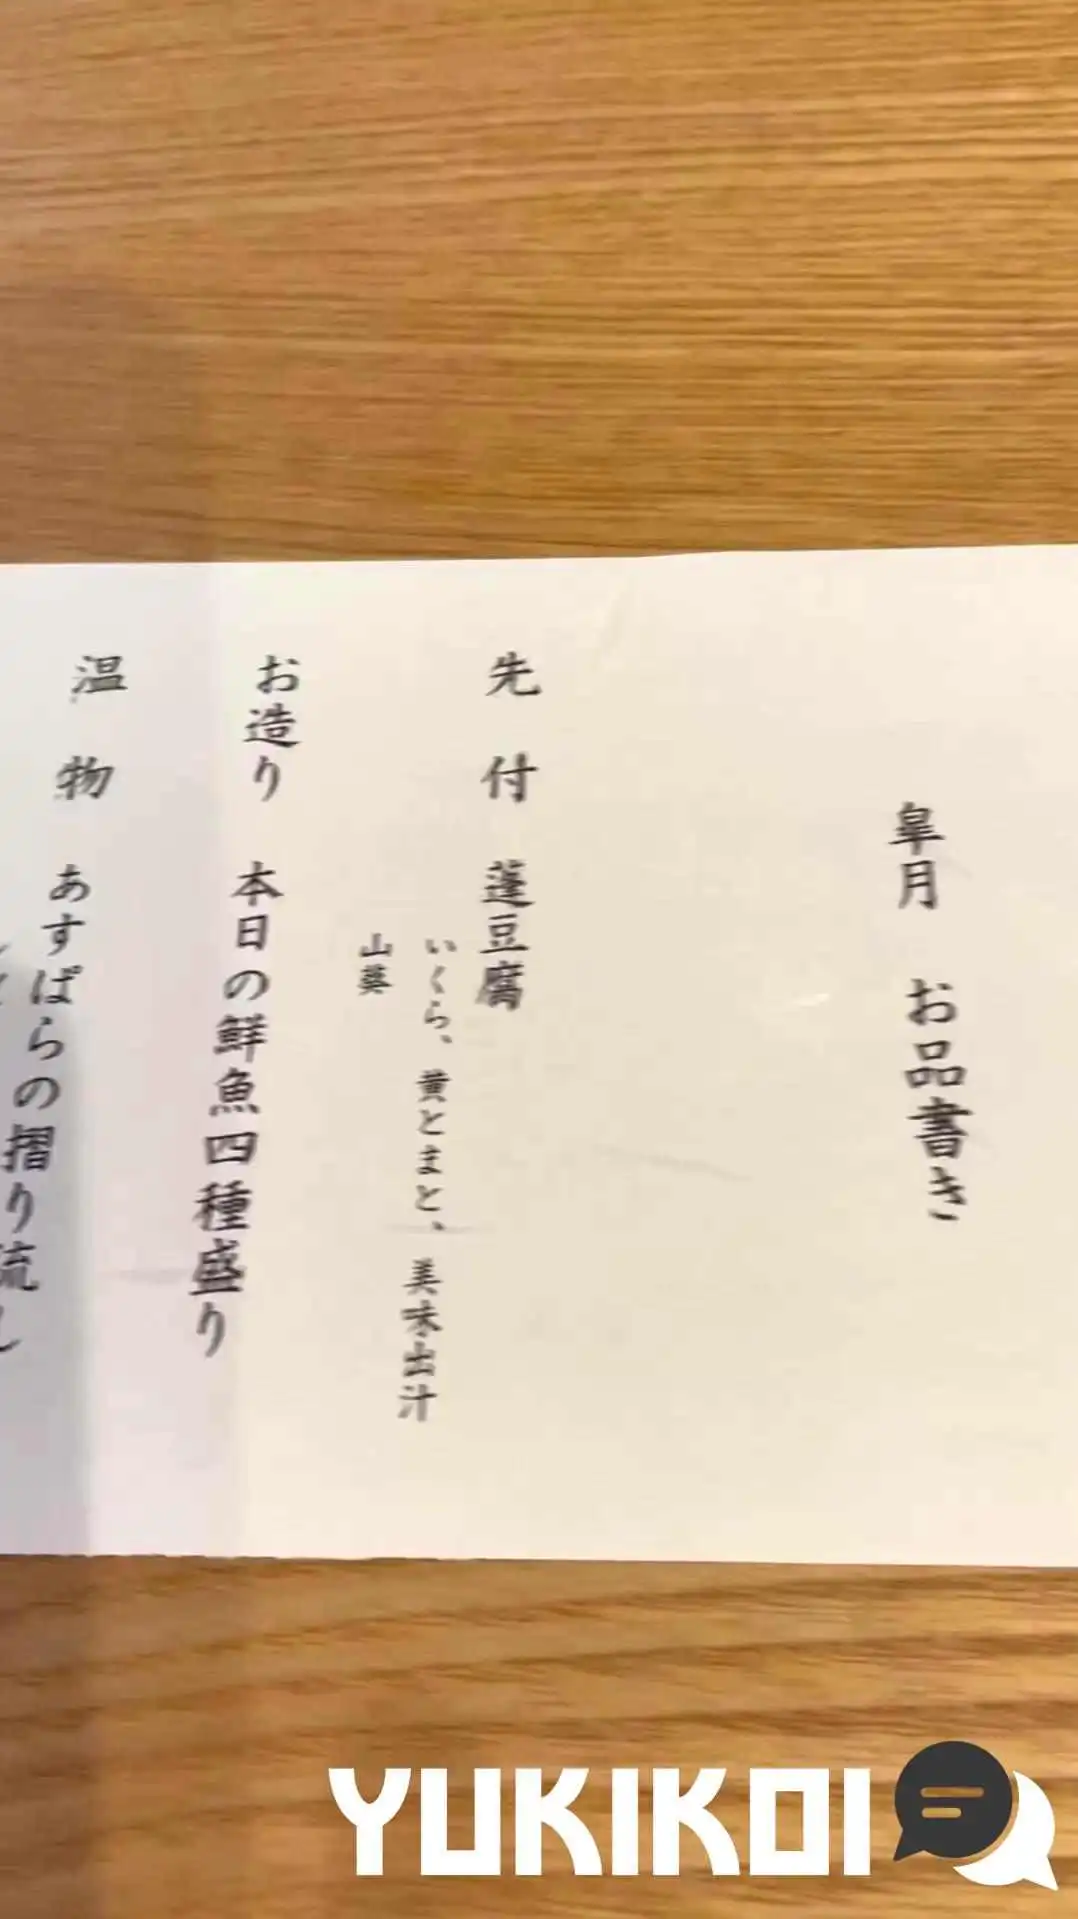 皐月　お品書き
先　付　蓬豆腐
いくら、黄とまと、美味出汁
山葵
お造り　本日の鮮魚四種盛り
温　物　あすぱらの摺り流し
YUKIKOI